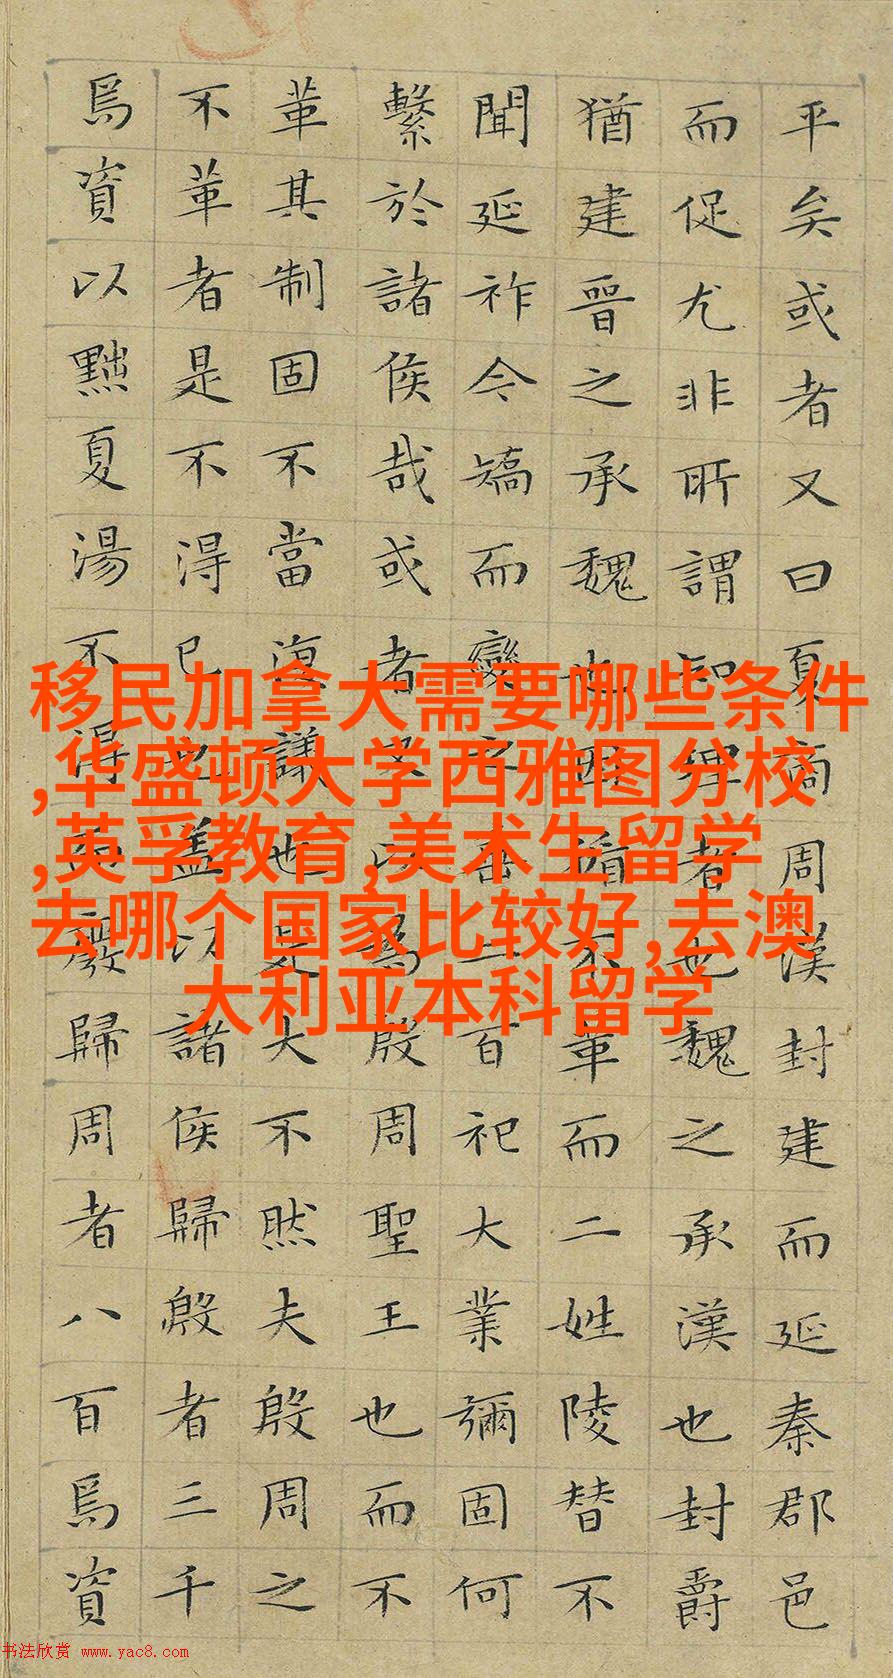 平矣或者又曰夏商周漢封建而延秦郡邑
而促尤非所謂知理者也魏之承漢也封爵
猶建晉之承魏也因循不革而二姓陵替不
聞延祚今矯而變之垂二百祀大業彌固何
繫於諸侯哉或者又以為殷周聖王也而不
革其制固不當復議也是大不然夫殷周之
不革者是不得已也蓋以諸侯歸殷者三千
焉資以黜夏湯不得而廢歸周者八百焉資
移民加拿大需要哪些条件
,华盛顿大学西雅图分校
,英孚教育,美术生留学
去哪个国家比较好,去澳
大利亚本科留学
书法欣赏 www.yac8.com